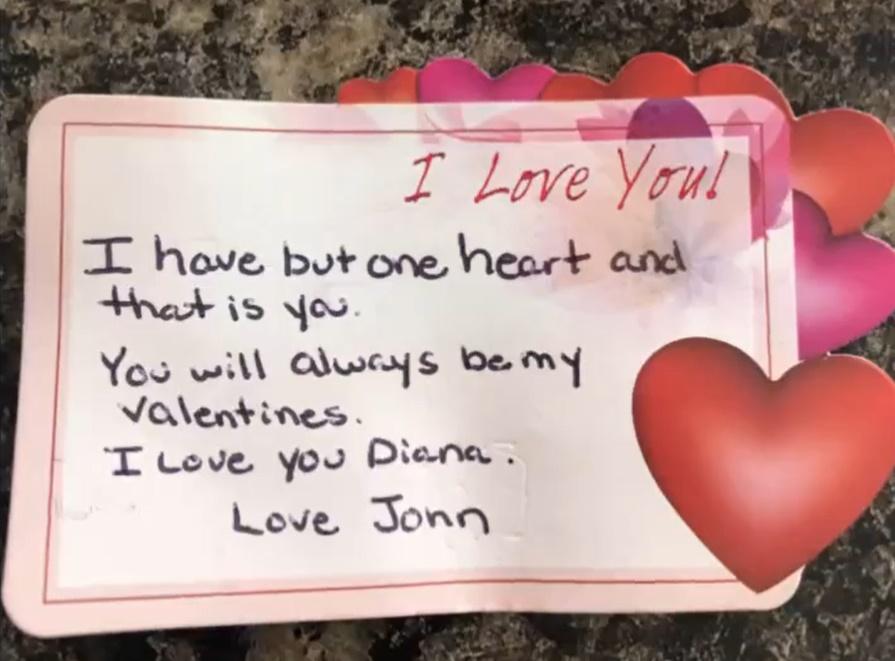 I Love You!
I have but one heart and
that is you.
You will always be my
Valentines.
I Love you Diana.
Love Jonn